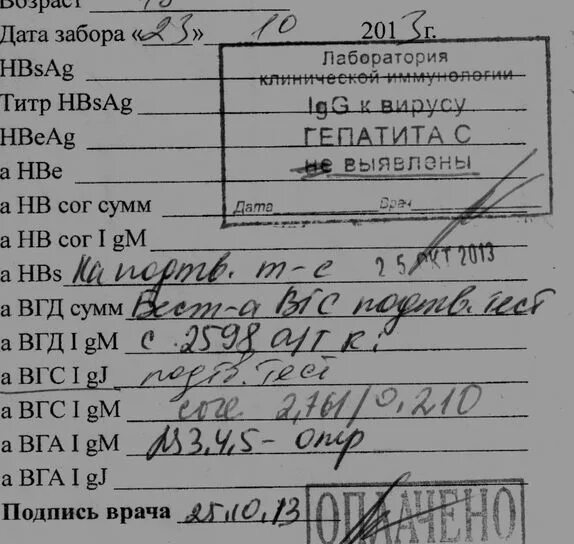 Возраст
Дата забора «23» 10 2013г.
HBsAg
Титр HBsAg
HBeAg
а HBe
а HB cor сумм
а HB cor I gM
а HBs На подтв. т-с
а ВГД сумм Вест-а ВГС подтв. тест
а ВГД I gM с 2598 а/т к
а ВГС I gJ подтв. тест
а ВГС I gM core 2,761/0,210
а ВГА I gM NS3,4,5- отр
а ВГА I gJ
Подпись врача 25.10.13
Лаборатория
клинической иммунологии
IgG к вирусу
ГЕПАТИТА С
не выявлены
Дата Врач
25 ОКТ 2013
ОПЛАЧЕНО